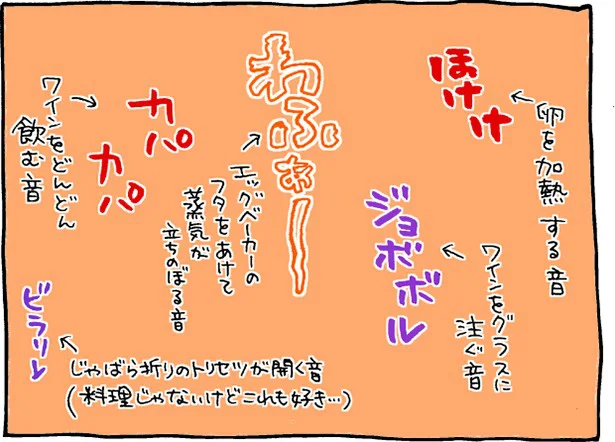 ほけけ
卵を加熱する音
ジョボボル
ワインをグラスに
注ぐ音
わふぁー
エッグベーカーの
フタをあけて
蒸気が
立ちのぼる音
カパ
カパ
ワインをどんどん
飲む音
ビラリレ
じゃばら折りのトリセツが開く音
(料理じゃないけどこれも好き…)